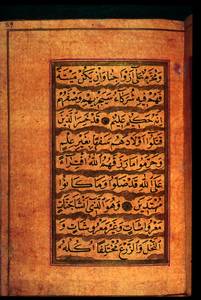 وَمُحَرَّمٌ عَلَى أَزْوَاجِنَا وَإِنْ يَكُنْ مَيْتَةً
فَهُمْ فِيهِ شُرَكَاءُ سَيَجْزِيهِمْ وَصْفَهُمْ
إِنَّهُ حَكِيمٌ عَلِيمٌ قَدْ خَسِرَ الَّذِينَ
قَتَلُوا أَوْلَادَهُمْ سَفَهًا بِغَيْرِ عِلْمٍ
وَحَرَّمُوا مَا رَزَقَهُمُ اللَّهُ افْتِرَاءً
عَلَى اللَّهِ قَدْ ضَلُّوا وَمَا كَانُوا
مُهْتَدِينَ وَهُوَ الَّذِي أَنْشَأَ جَنَّاتٍ
مَعْرُوشَاتٍ وَغَيْرَ مَعْرُوشَاتٍ وَ
النَّخْلَ وَالزَّرْعَ مُخْتَلِفًا أُكُلُهُ